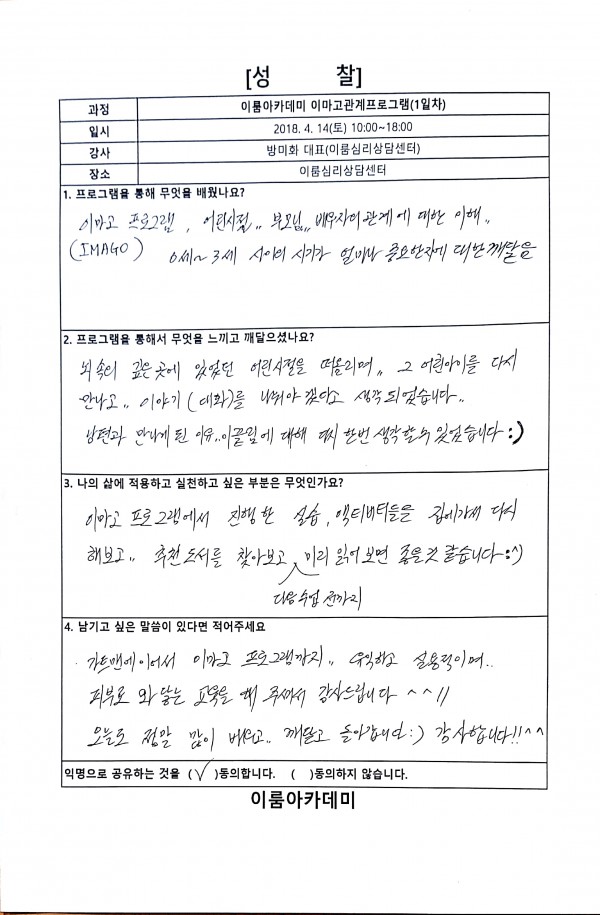 [성 찰]
과정 이룸아카데미 이마고관계프로그램(1일차)
일시 2018. 4. 14(토) 10:00~18:00
강사 방미화 대표(이룸심리상담센터)
장소 이룸심리상담센터
1. 프로그램을 통해 무엇을 배웠나요?
이마고 프로그램, 어린시절,, 부모님,, 배우자의 관계에 대한 이해,,
(IMAGO) 0세~3세 사이의 시기가 얼마나 중요한지에 대한 깨달음
2. 프로그램을 통해서 무엇을 느끼고 깨달으셨나요?
뇌 속의 깊은 곳에 있었던 어린시절을 떠올리며,, 그 어린아이를 다시
만나고,, 이야기 (대화)를 나눠야 겠다고 생각 되었습니다..
남편과 만나게 된 이유..이끌림에 대해 다시 한번 생각할 수 있었습니다 :)
3. 나의 삶에 적용하고 실천하고 싶은 부분은 무엇인가요?
이마고 프로그램에서 진행한 실습, 액티비티들을 집에가서 다시
해보고,, 추천도서를 찾아보고 미리 읽어보면 좋을것 같습니다 :^)
다음 수업 전까지
4. 남기고 싶은 말씀이 있다면 적어주세요
가트맨에 이어서 이마고 프로그램까지,, 유익하고 실용적이며..
피부로 와 닿는 교육을 해 주셔서 감사드립니다 ^^!!
오늘도 정말 많이 배우고.. 깨달고 돌아갑니다 :) 감사합니다!! ^^
익명으로 공유하는 것을 (√)동의합니다. ( )동의하지 않습니다.
이룸아카데미